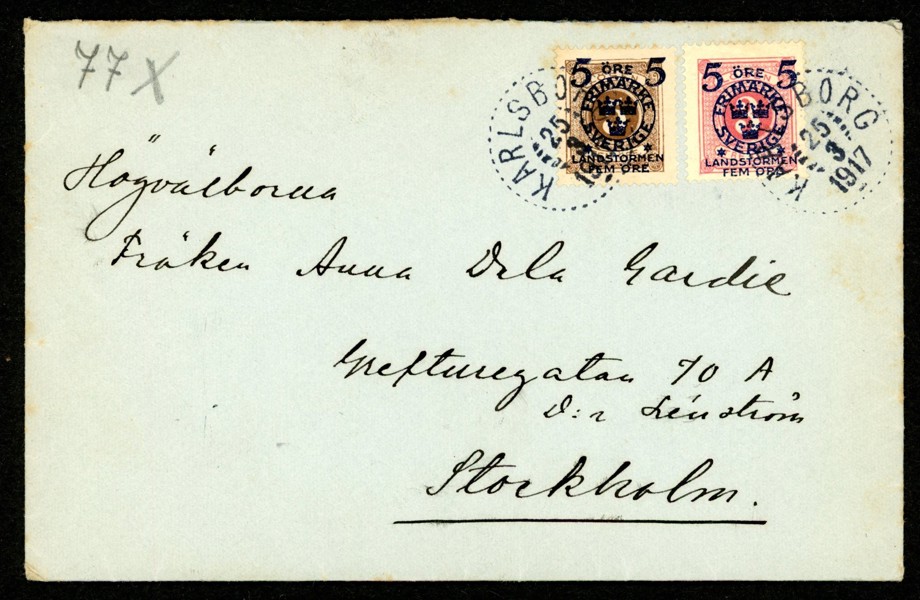 77 X
5 ÖRE 5
FRIMÄRKE
SVERIGE
LANDSTORMEN
FEM ÖRE
5 ÖRE 5
FRIMÄRKE
SVERIGE
LANDSTORMEN
FEM ÖRE
KARLSBO
25
3
191
BORG
25
3
1917
Högvälborna
Fröken Anna De la Gardie
Grefturegatan 70 A
D:r Lénström
Stockholm.